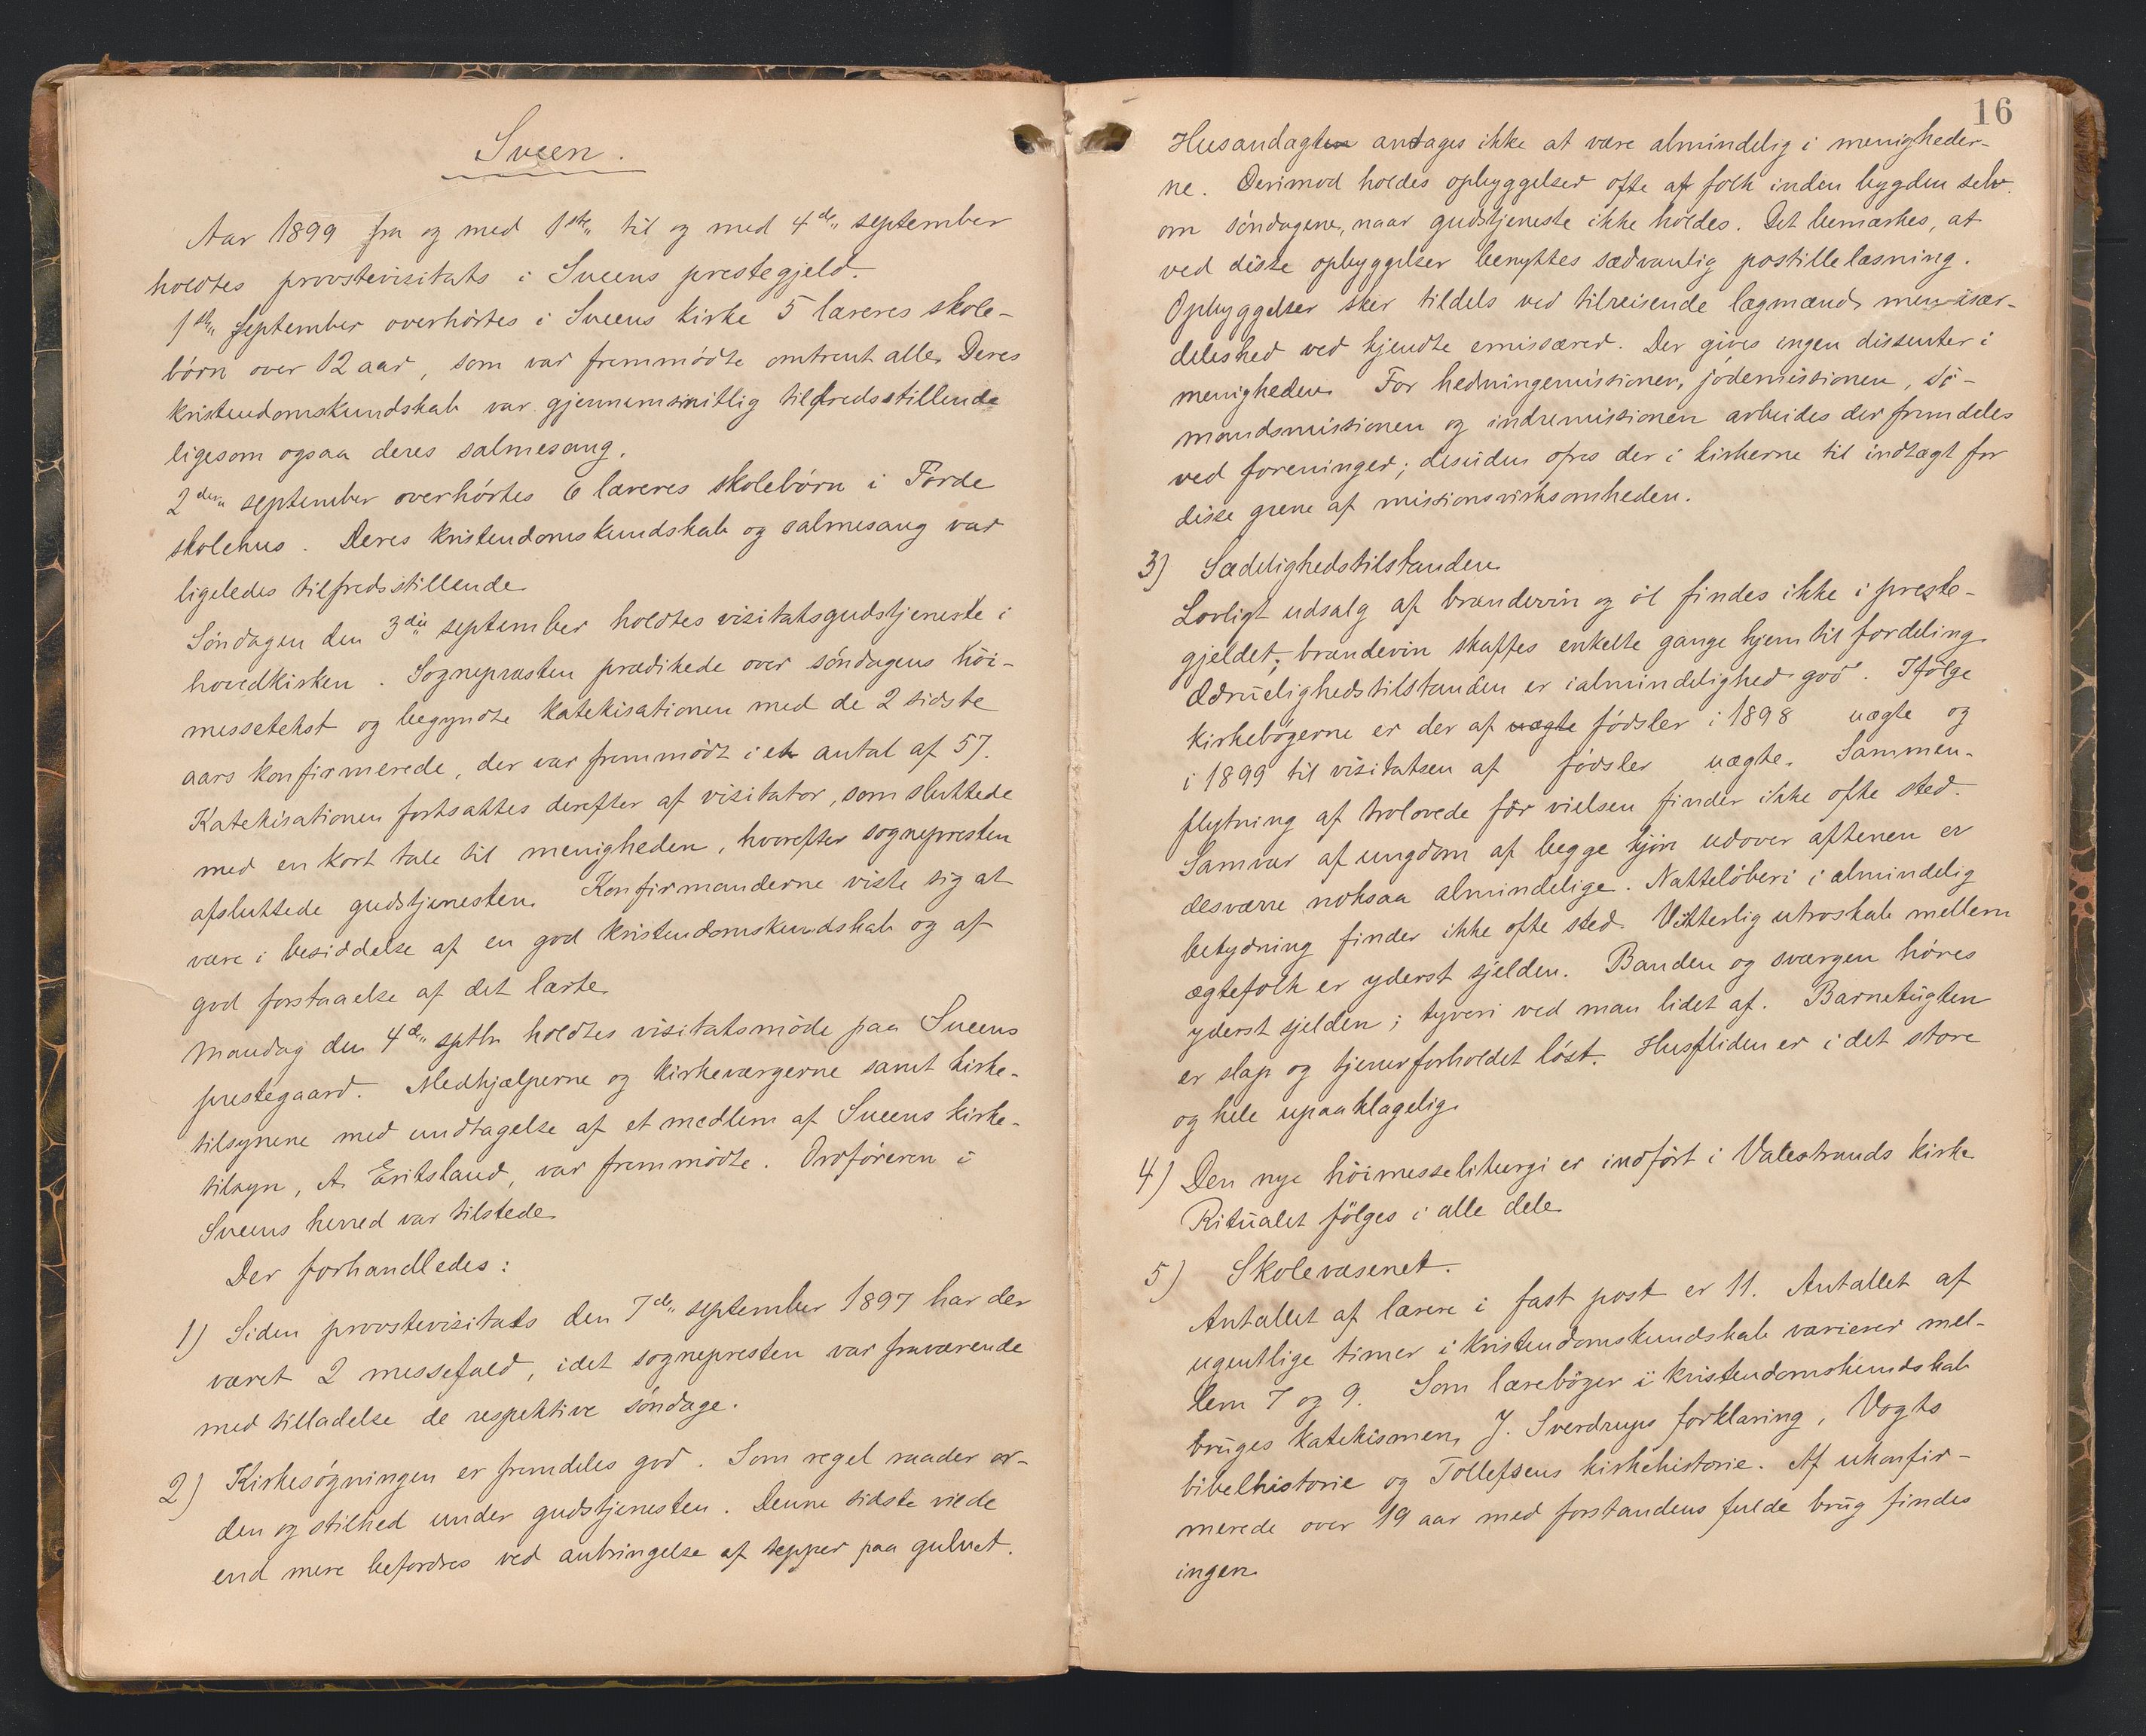 Sveen.
Aar 1899 fra og med 1ste til og med 4de september
holdtes provstevisitats i Sveens prestegjeld.
1ste september overhørtes i Sveens kirke 5 læreres skole-
børn over 12 aar, som var fremmødte omtrent alle. Deres
kristendomskundskab var gjennemsnitlig tilfredsstillende
ligesom ogsaa deres salmesang.
2den september overhørtes 6 læreres skolebørn i Førde
skolehus. Deres kristendomskundskab og salmesang var
ligeledes tilfredsstillende.
Søndagen den 3die september holdtes visitatsgudstjeneste i
hovedkirken. Sognepræsten prædikede over søndagens høi-
messetekst og begyndte katekisationen med de 2 sidste
aars konfirmerede, der var fremmødt i et antal af 57.
Katekisationen fortsattes derefter af visitator, som sluttede
med en kort tale til menigheden, hvorefter sognepresten
afsluttede gudstjenesten. Konfirmanderne viste sig at
være i besiddelse af en god kristendomskundskab og af
god forstaaelse af det lærte.
Mandag den 4de septbr holdtes visitatsmøde paa Sveens
prestegaard. Medhjælperne og kirkeværgerne samt kirke-
tilsynene med undtagelse af et medlem af Sveens kirke-
tilsyn, A. Eritsland, var fremmødte. Ordføreren i
Sveens herred var tilstede.
Der forhandledes:
1) Siden provstevisitats den 7de september 1897 har der
været 2 messefald, idet sognepresten var fraværende
med tilladelse de respektive søndage.
2) Kirkesøgningen er fremdeles god. Som regel raader or-
den og stilhed under gudstjenesten. Denne sidste vilde
end mere befordres ved anbringelse af tepper paa gulvet.
16
Husandagten antages ikke at være almindelig i menigheder-
ne. Derimod holdes opbyggelser ofte af folk inden bygden selv
om søndagene, naar gudstjeneste ikke holdes. Det bemærkes, at
ved disse opbyggelser benyttes sædvanlig postillelæsning.
Opbyggelser sker tildels ved tilreisende lægmænd, men især-
deleshed ved kjendte emissærer. Der gives ingen dissenter i
menigheden. For hedningemissionen, jødemissionen, sø-
mandsmissionen og indremissionen arbeides der fremdeles
ved foreninger; desuden ofres der i kirkerne til indtægt for
disse grene af missionsvirksomheden.
3) Sædelighedstilstanden.
Lovligt udsalg af brændevin og øl findes ikke i preste-
gjeldet; brændevin skaffes enkelte gange hjem til fordeling.
Ædruelighedstilstanden er i almindelighed god. Ifølge
kirkebøgerne er der af uægte fødsler i 1898 uægte og
i 1899 til visitatsen af fødsler uægte. Sammen-
flytning af trolovede før vielsen finder ikke ofte sted.
Samvær af ungdom af begge kjøn udover aftenen er
desværre noksaa almindelige. Natteløberi i almindelig
betydning finder ikke ofte sted. Vitterlig utroskab mellem
ægtefolk er yderst sjelden. Banden og sværgen høres
yderst sjelden; tyveri ved man lidet af. Barnetugten
er slap og tjenerforholdet løst. Husfliden er i det store
og hele upaaklagelig.
4) Den nye høimesseliturgi er indført i Valestrands kirke.
Ritualet følges i alle dele.
5) Skolevæsenet.
Antallet af lærere i fast post er 11. Antallet af
ugentlige timer i kristendomskundskab varierer mel-
lem 7 og 9. Som lærebøger i kristendomskundskab
bruges katekismen, J. Sverdrups forklaring, Vogts
bibelhistorie og Tollefsens kirkehistorie. Af ukonfir-
merede over 19 aar med forstandens fulde brug findes
ingen.